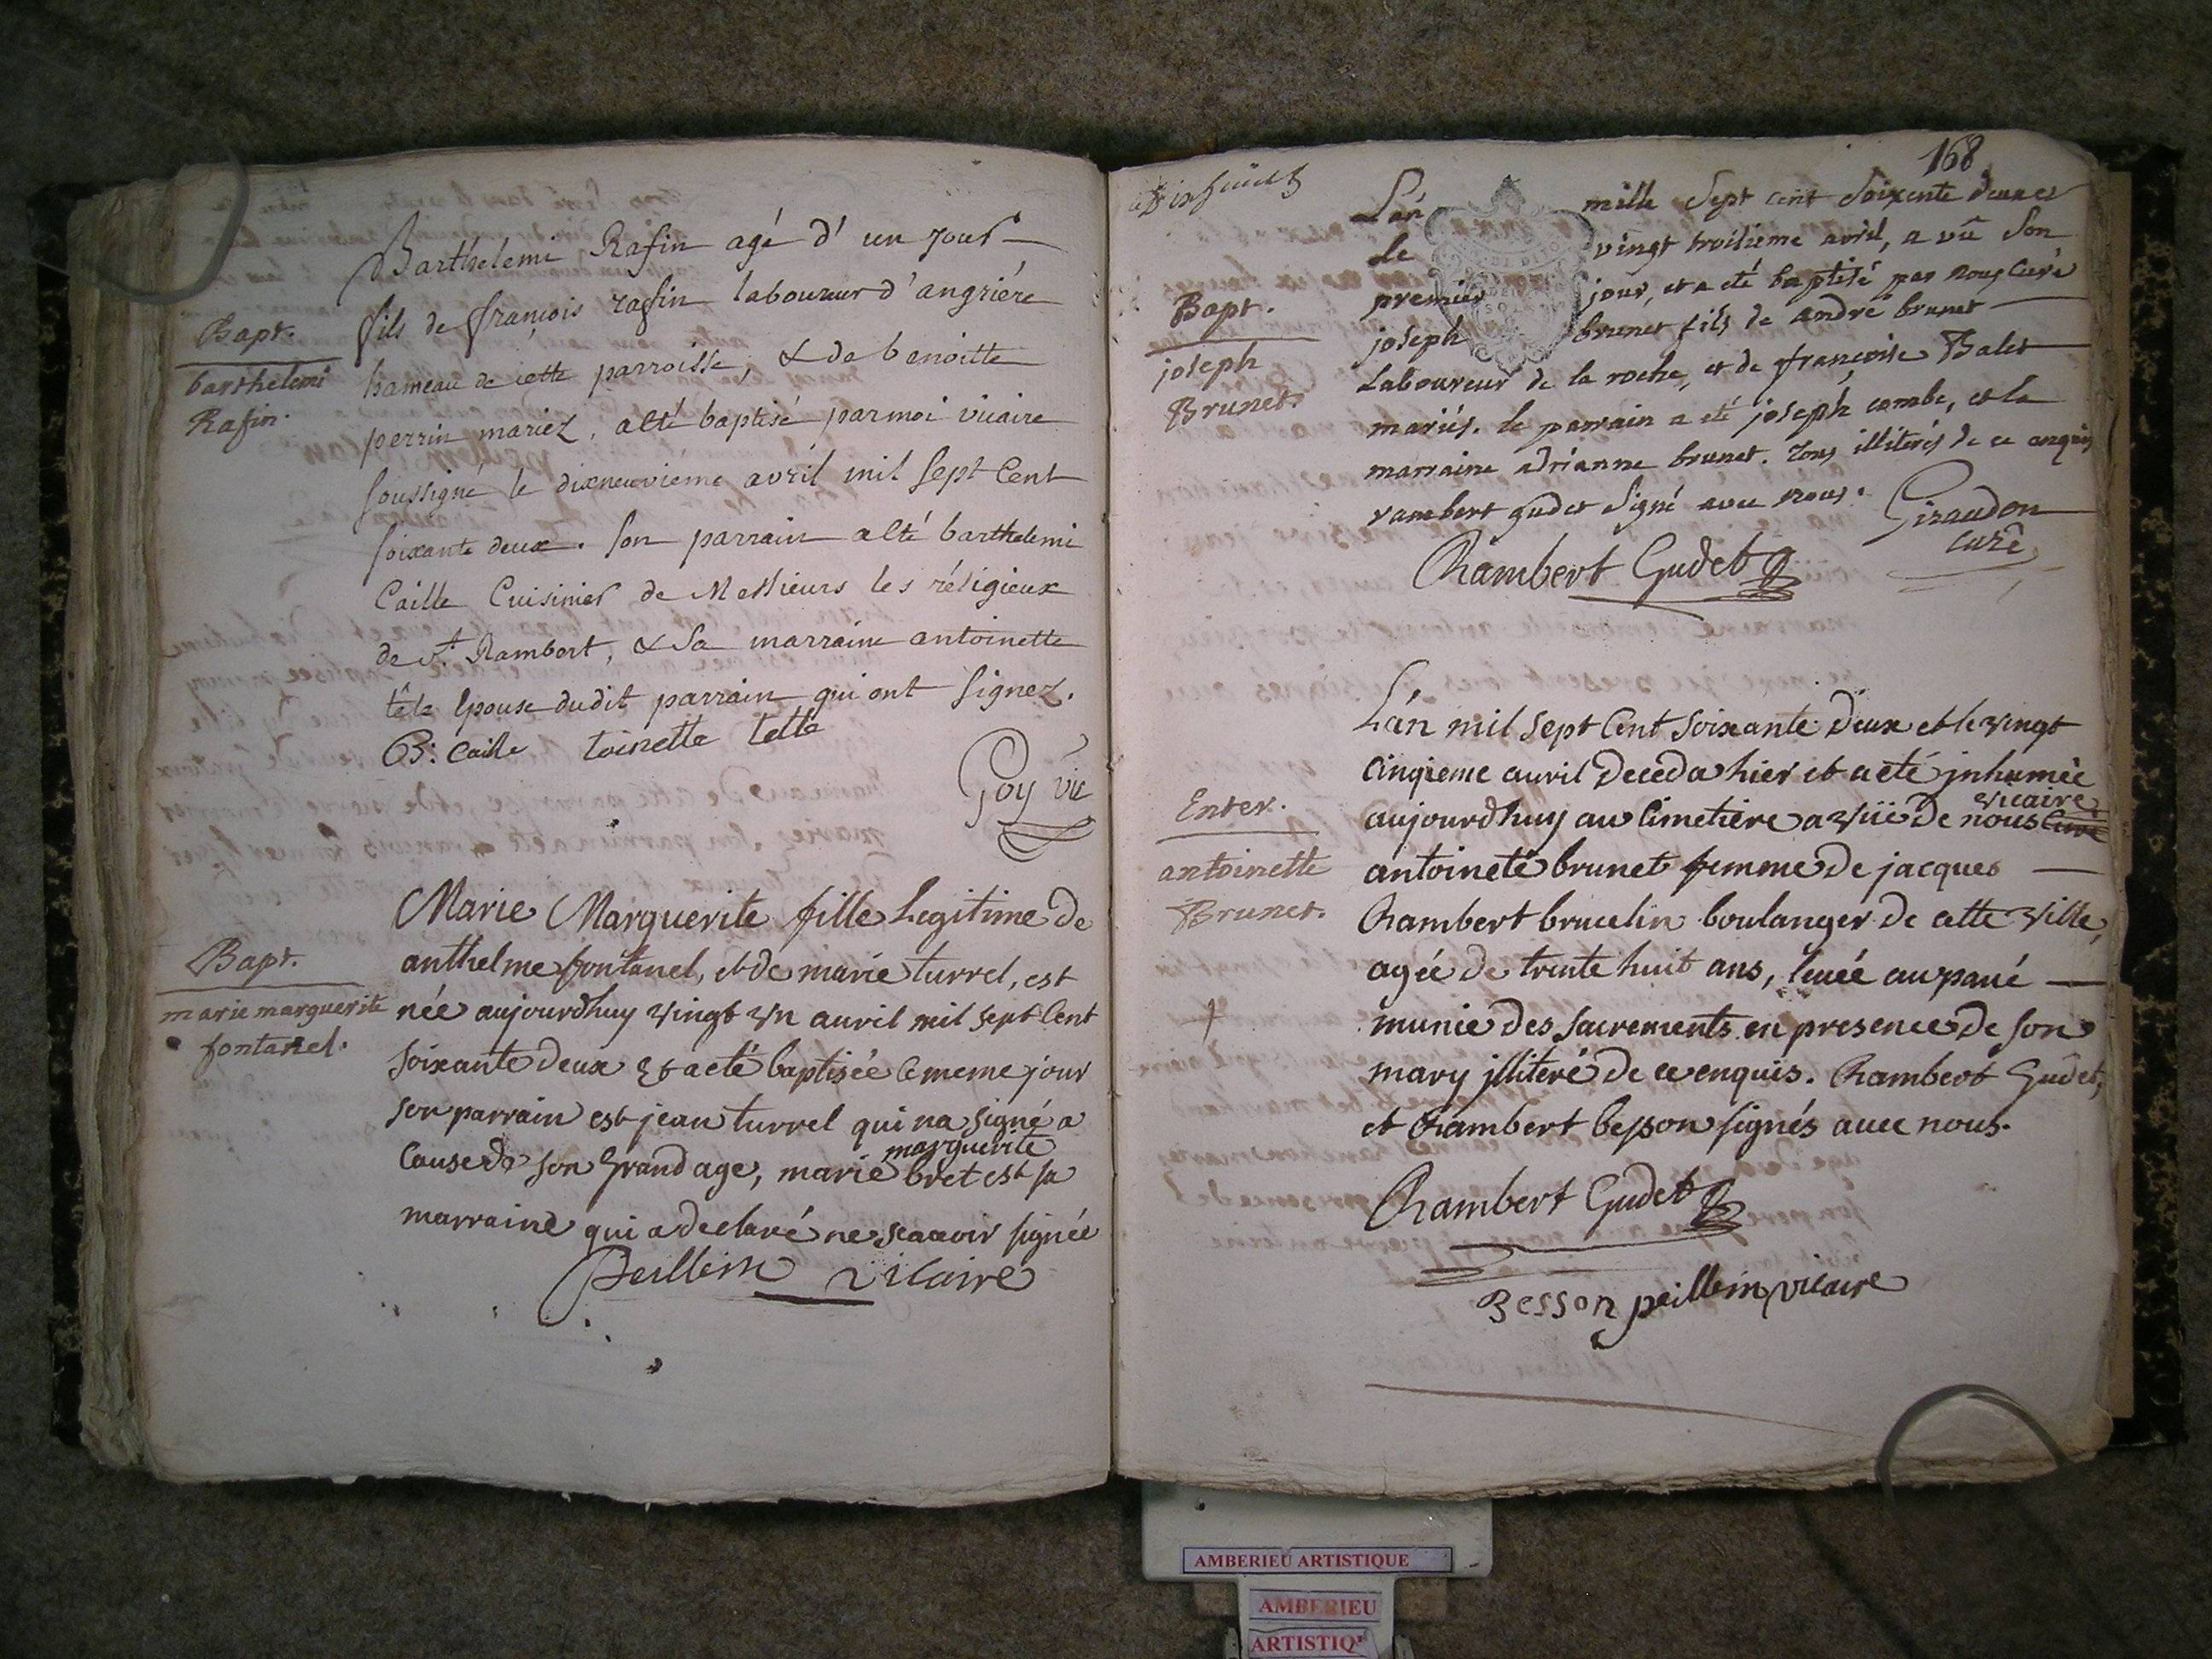 Bapt.
barthelemi
Rafin.
Barthelemi Rafin agé d'un jour
fils de françois rafin laboureur d'angriére
hameau de cette parroisse, & de benoitte
perrin mariez, a été baptisé par moi vicaire
soussigné le dixneuviéme avril mil sept Cent
soixante deux. son parrain a été barthelemi
Caille Cuisinier de Messieurs les réligieux
de st. Rambert, & sa marraine antoinette
tête Epouse dudit parrain qui ont signez.
B: Caille toinette tette
Goy vic
Bapt.
marie marguerite
fontanel.
Marie Marguerite fille Legitime de
anthelme fontanel, et de marie turrel, est
née aujourdhuy vingt vn auril mil sept Cent
soixante deux et a eté baptisée le meme jour
son parrain est jean turrel qui na signé a
Cause de son grand age, marie marguerite bret est sa
marraine qui a declaré ne scauoir signée
Peillein vicaire
168
dixhuict
Bapt.
joseph
Brunet.
L'an mille Sept cent Soixente deux et
le vingt troisieme avril, a vû Son
premier jour, et a eté baptisé par nous Curé
joseph brunet fils de andré brunet
Laboureur de la roche, et de françoise Balet
mariés. le parrain a eté joseph combe, et la
marraine adrianne brunet. tous illiterés de ce enquis
rambert gudet Signé avec nous.
Giraudon
curé
Rambert Gudet
Enter.
antoinette
Brunet.
L'an mil sept Cent soixante deux et le vingt
cinqieme auril deceda hier et a eté jnhumée
aujourdhuy au Cimetiere a vüe de nous Curé vicaire
antoinete brunet femme de jacques
Rambert brucelin boulanger de cette ville,
agée de trente huit ans, leuée au paué
munie des sacrements en presence de son
mary jlliteré de ce enquis. Rambert Gudet,
et Rambert besson signés auec nous.
Rambert Gudet
Besson peillein vicaire
AMBERIEU ARTISTIQUE
AMBERIEU
ARTISTIQ